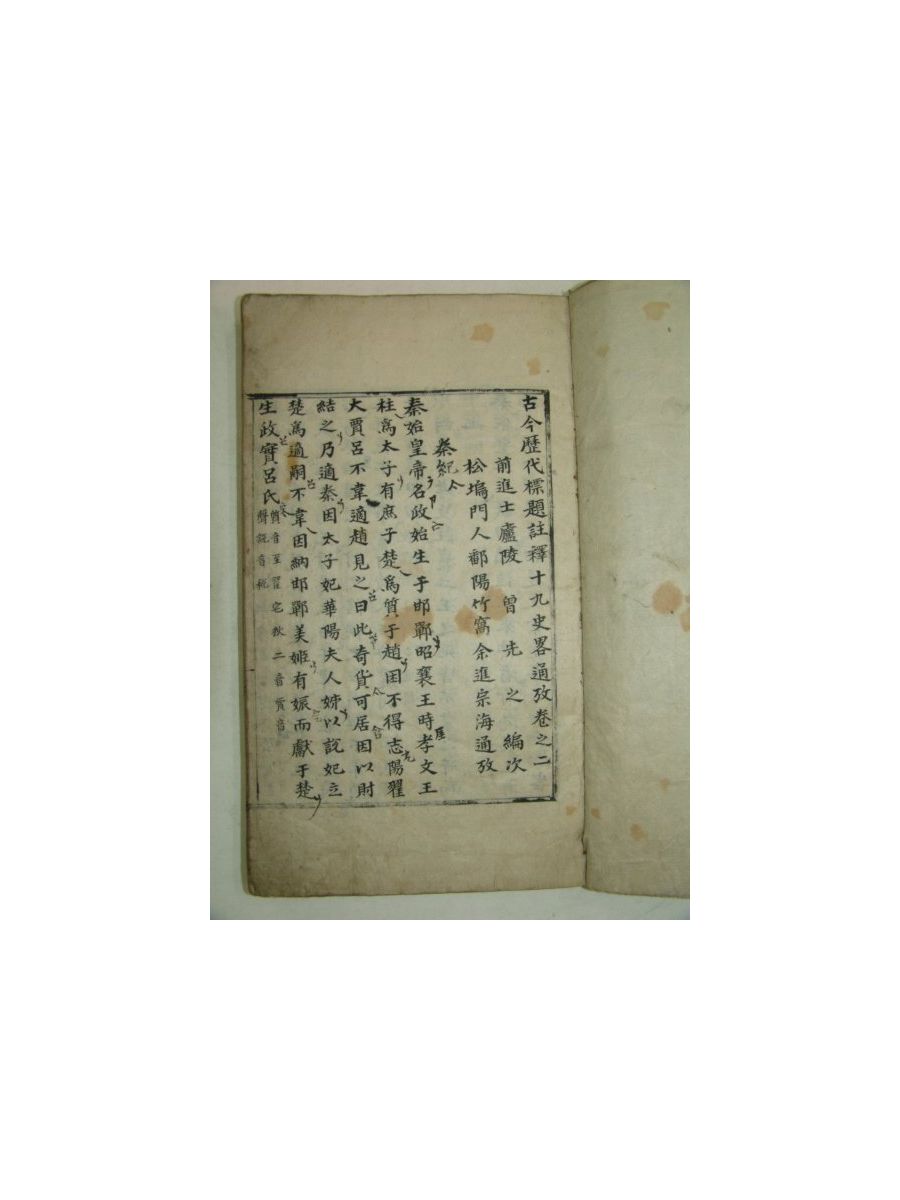 古今歷代標題註釋十九史畧通攷卷之二
前進士廬陵 曾 先 之 編次
松塢門人鄱陽竹窩余進宗海通攷
秦紀
秦始皇帝名政始生于邯鄲昭襄王時孝文王
柱爲太子有庶子楚爲質于趙困不得志陽翟
大賈呂不韋適趙見之曰此奇貨可居因以財
結之乃適秦因太子妃華陽夫人姊以說妃立
楚爲適嗣不韋因納邯鄲美姬有娠而獻于楚
生政實呂氏質音至翟宅狄二音賈音
聲說音稅